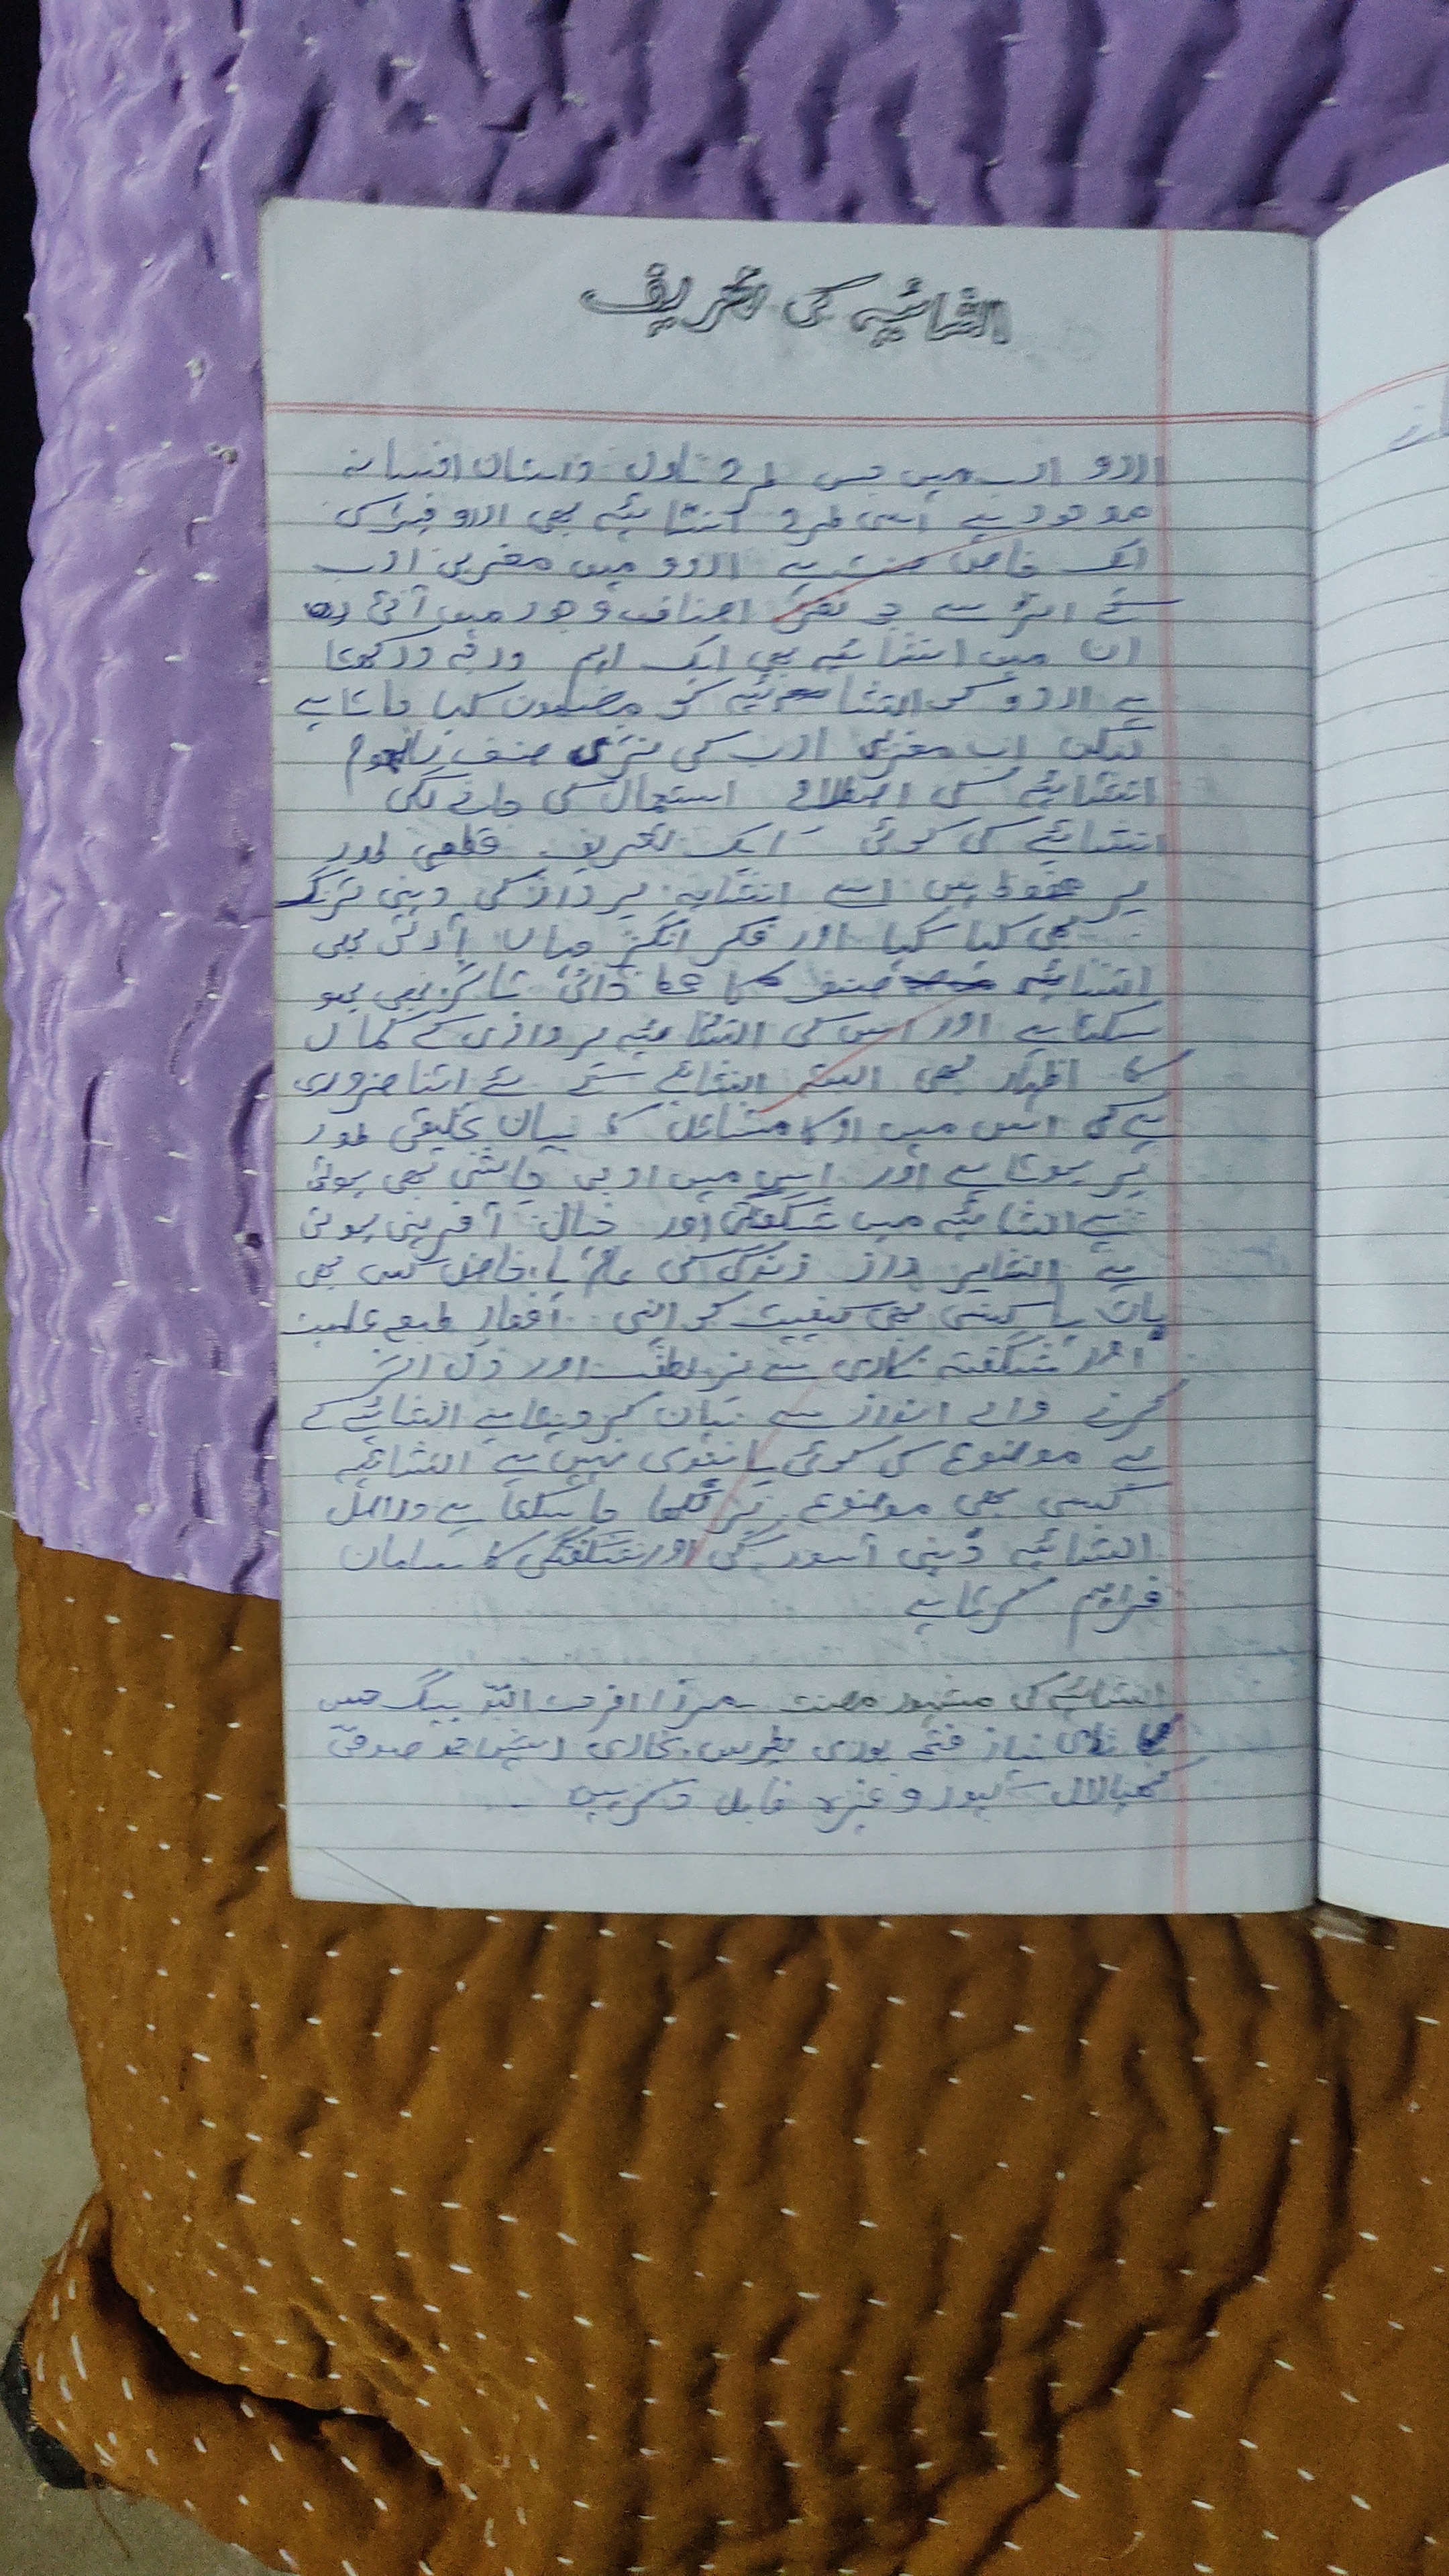 انشائیہ کی تعریف
اردو ادب میں جس طرح ناول داستان افسانہ
موجود ہے اسی طرح انشائیہ بھی اردو نثر کی
ایک خاص صنف ہے اردو میں مغربی ادب
کے اثر سے جو نثری اصناف وجود میں آئی
ان میں انشائیہ بھی ایک اہم
ہے اردو کی انشائیہ کو مضمون کہا جاتا ہے
لیکن اب مغربی ادب کی نثری صنف
انشائیے کی اصطلاح استعمال کی جانے لگی
انشائیے کی کوئی ایک تعریف قطعی طور
پر اسے انشایہ پرداز کی ذہنی ترنگ
بھی کہا گیا اور فکر انگیز بھی
انشائیہ صنف کا ذاتی تاثر بھی ہو
سکتا ہے اور اس کی انشائیہ پردازی کے کمال
کا اظہار بھی البتہ انشائیے کے لئے اتنا ضروری
ہے کی اس میں کا بیان تخلیقی طور
پر ہوتا ہے اور اس میں ادبی چاشنی بھی ہوتی
ہے انشائیہ میں شگفتگی اور خیال آفرینی ہوتی
ہے انشایہ پرداز زندگی کی عام یا خاص کسی بھی
بات یا کیفیت کو اپنی افتاد طبع علمیت
اور شگفتہ نگاری سے پر لطف اور دل اثر
کرنے والے انداز سے بیان کر دیتا ہے انشائیے کے
لے موضوع کی کوئی پابندی نہیں ہے انشائیہ
کسی بھی موضوع پر لکھا جا سکتا ہے دراصل
انشائیہ ذہنی آسودگی اور شگفتگی کا سامان
فراہم کرتا ہے
انشائیہ کی مشہور مصنف مرزا فرحت اللہ بیگ
نیاز فتح پوری پطرس بخاری رشید احمد صدیقی
کنھیالال کپور وغیرہ قابل ذکر ہیں